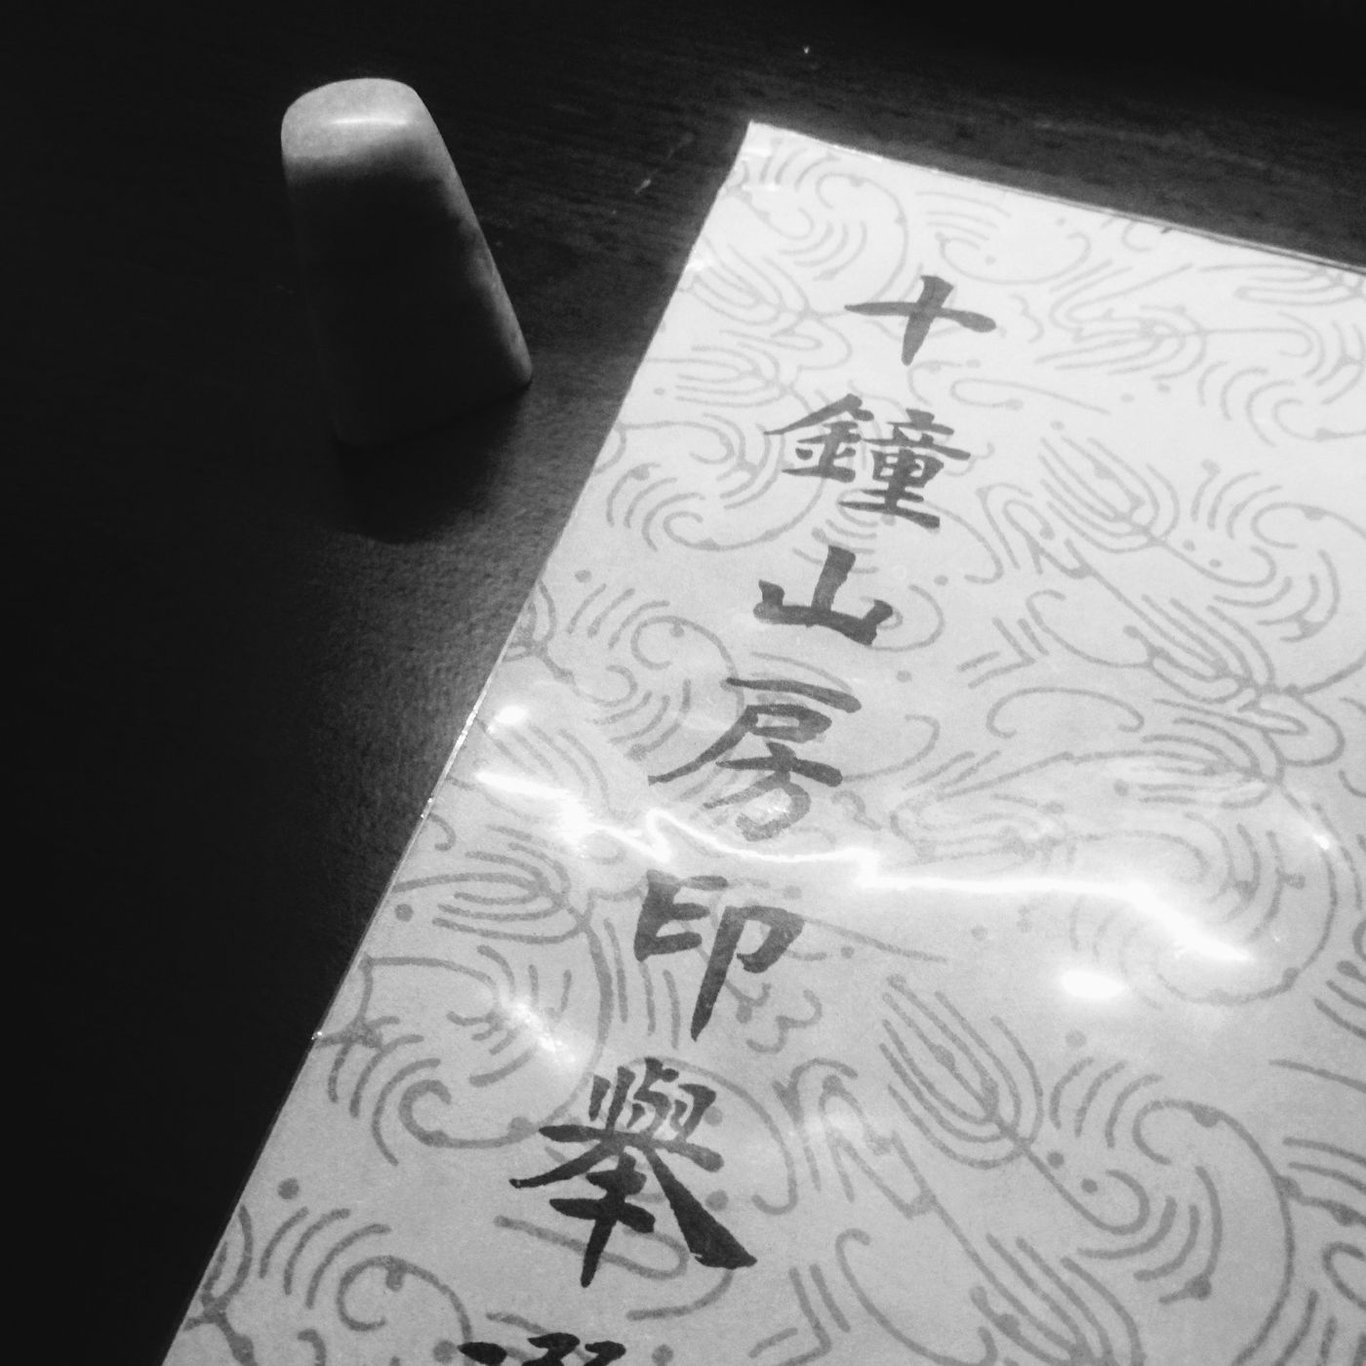 十鐘山房印舉